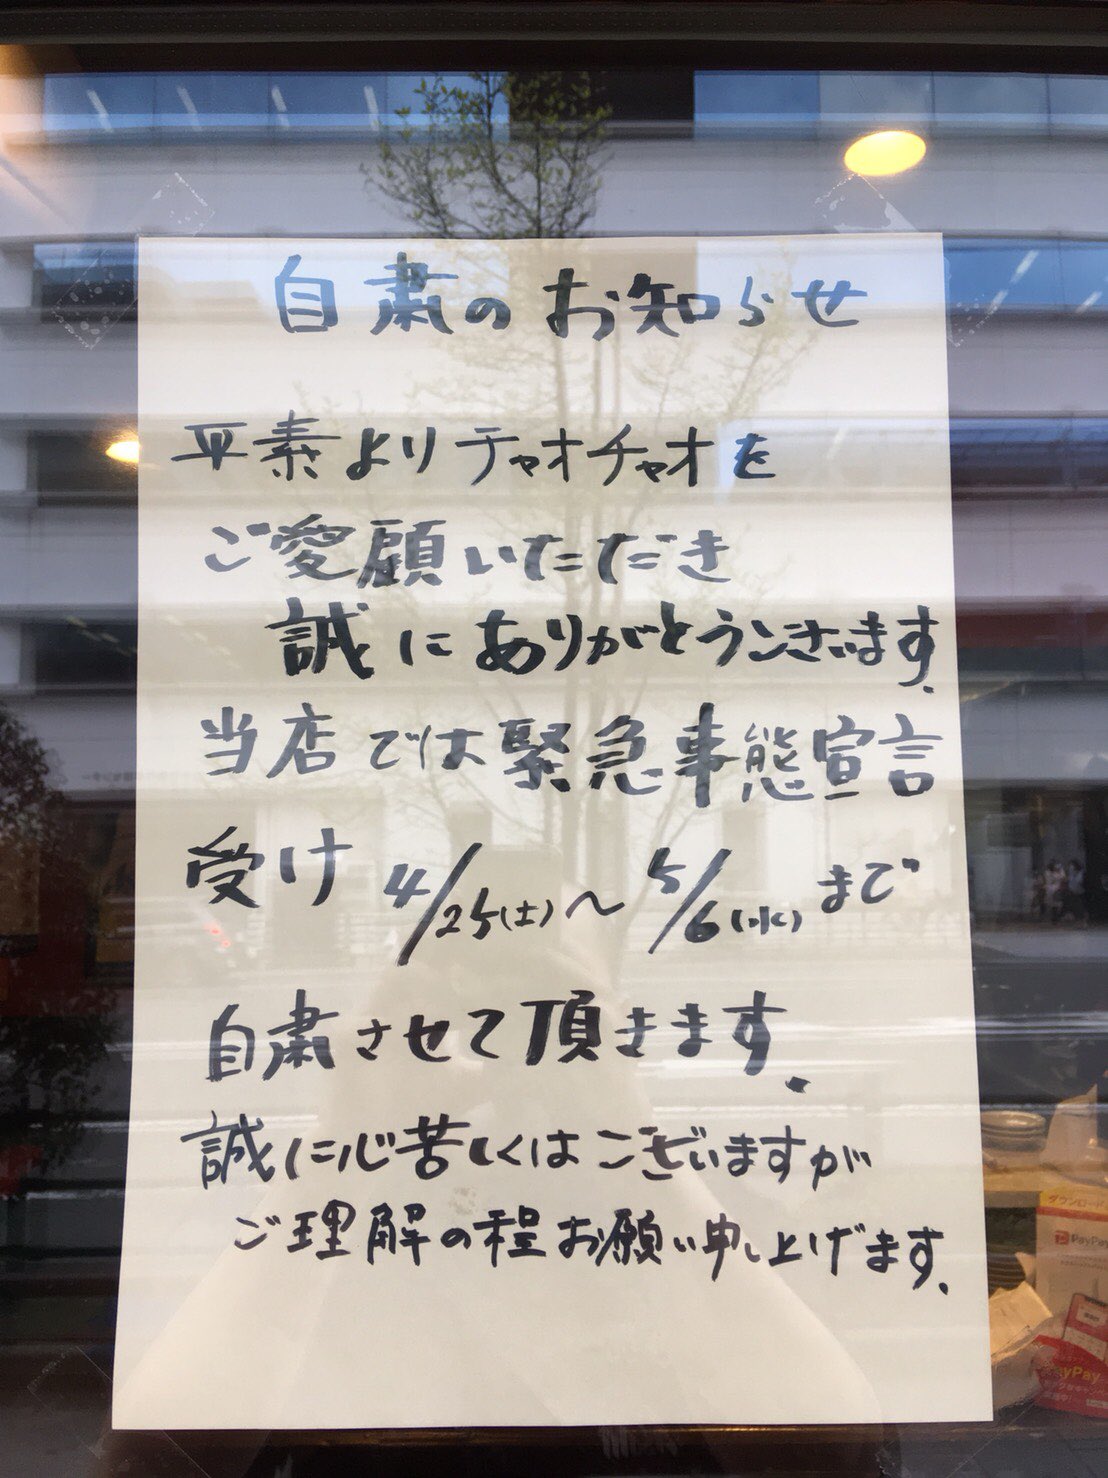 自粛のお知らせ
平素よりチャオチャオを
ご愛顧いただき
誠にありがとうございます.
当店では緊急事態宣言
受け 4/25(土)〜5/6(水)まで
自粛させて頂きます.
誠に心苦しくはございますが
ご理解の程お願い申し上げます.
ダウンロード
PayPay
PayPay